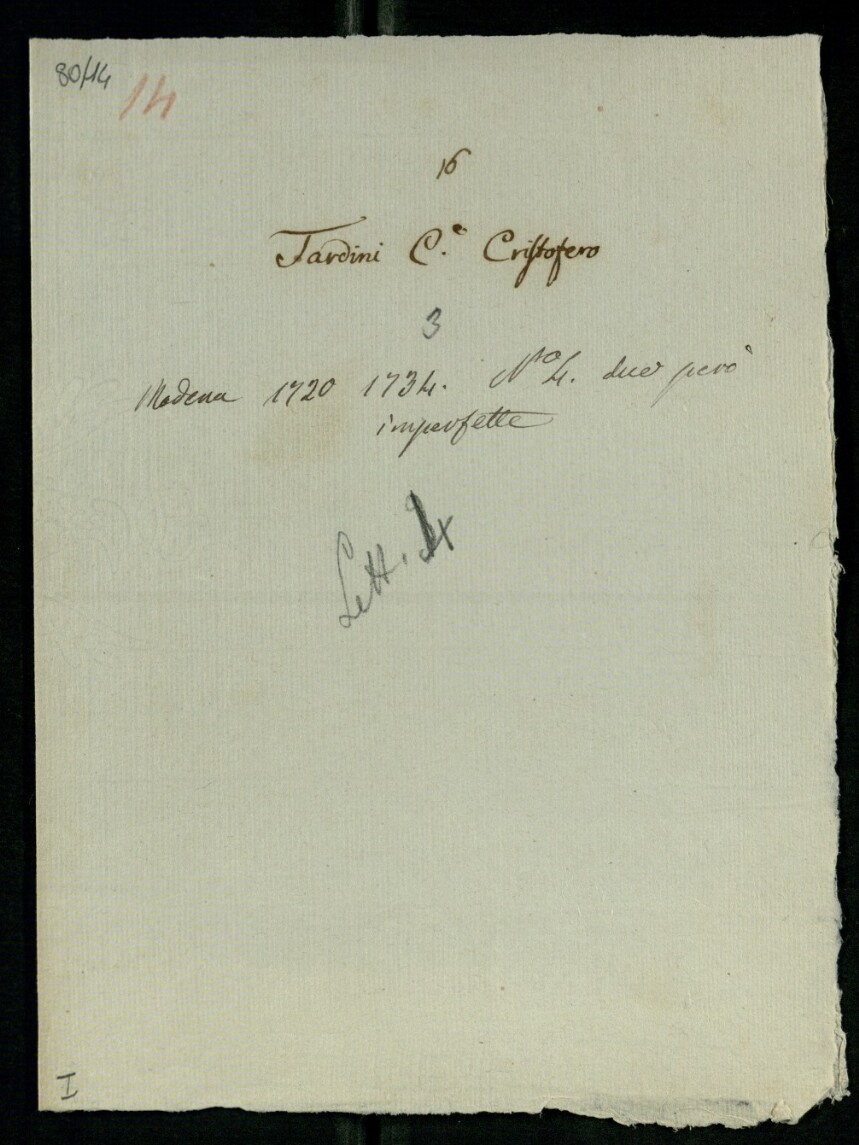 80/14
14
16
Tardini C.e Cristofero
3
Modena 1720 1734. N.o 4. due però
imperfette
Lett. 4
I